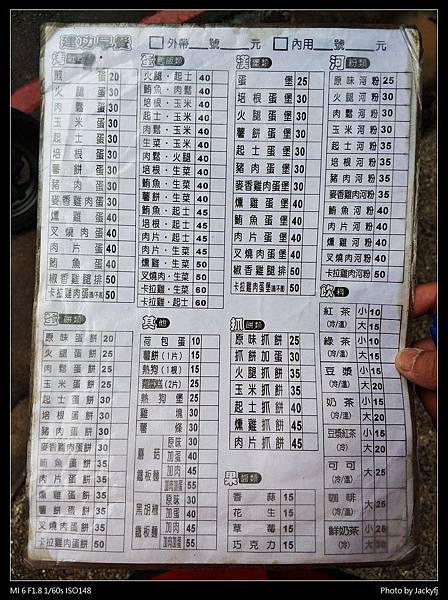 建功早餐 □外帶__號____元 □內用__號____元
煎 蛋 20
火腿蛋 30
肉鬆蛋 30
玉米蛋 30
起士蛋 30
培根蛋 30
薯餅蛋 30
豬肉蛋 30
麥香雞肉蛋 30
燻雞蛋 40
叉燒肉蛋 40
肉片蛋 40
鮪魚蛋 40
椒香雞腿排 50
卡拉雞肉蛋 50
蛋 蛋類
火腿・起士 40
鮪魚・肉鬆 40
培根・玉米 40
起士・玉米 40
肉鬆・玉米 40
生菜・玉米 40
肉鬆・火腿 40
培根・生菜 40
鮪魚・生菜 40
薯餅・生菜 40
燻雞・起士 45
肉片・起士 45
肉片・生菜 50
叉燒肉・生菜 50
卡拉雞・生菜 60
卡拉雞・起士 60
漢 堡類
蛋 堡 25
培根蛋堡 30
火腿蛋堡 30
薯餅蛋堡 30
豬肉蛋堡 30
麥香雞肉蛋堡 30
燻雞蛋堡 40
鮪魚蛋堡 40
肉片蛋堡 40
叉燒肉蛋堡 40
椒香雞腿堡 50
卡拉雞肉蛋堡 50
河 粉類
原味河粉 25
火腿河粉 30
肉鬆河粉 30
玉米河粉 30
起士河粉 35
培根河粉 35
豬肉河粉 35
麥香雞肉河粉 35
鮪魚河粉 40
肉片河粉 40
燻雞河粉 40
叉燒肉河粉 40
卡拉雞肉河粉 50
蛋 餅類
原味蛋餅 20
火腿蛋餅 25
肉鬆蛋餅 25
玉米蛋餅 25
起士蛋餅 30
培根蛋餅 30
豬肉蛋餅 30
麥香雞肉蛋餅 30
鮪魚蛋餅 35
肉片蛋餅 35
燻雞蛋餅 35
叉燒肉蛋餅 35
卡拉雞肉蛋餅 50
其 他
荷包蛋 10
薯餅(1片) 15
熱狗(1根) 15
蘿蔔糕(2片) 25
熱狗堡 25
雞塊 30
薯條 30
蘑菇鐵板麵
原味 30
加蛋 40
加肉 45
加肉加蛋 55
黑胡椒鐵板麵
原味 30
加蛋 40
加肉 45
加肉加蛋 55
抓 餅類
原味抓餅 25
抓餅加蛋 30
火腿抓餅 35
玉米抓餅 35
起士抓餅 40
燻雞抓餅 45
肉片抓餅 45
果 醬類
香蒜 15
花生 15
草莓 15
巧克力 15
飲 料
紅茶 (冷/溫) 小 10 大 15
綠茶 (冷/溫) 小 10 大 15
豆漿 (冷/溫) 小 15 大 20
奶茶 (冷/溫) 小 15 大 20
豆漿紅茶 (冷/溫) 小 15 大 20
可可 (冷/溫) 大 25
咖啡 (冷/溫) 大 25
鮮奶茶 (冷) 小 25 大 30
MI 6 F1.8 1/60s ISO148
Photo by Jackyfj